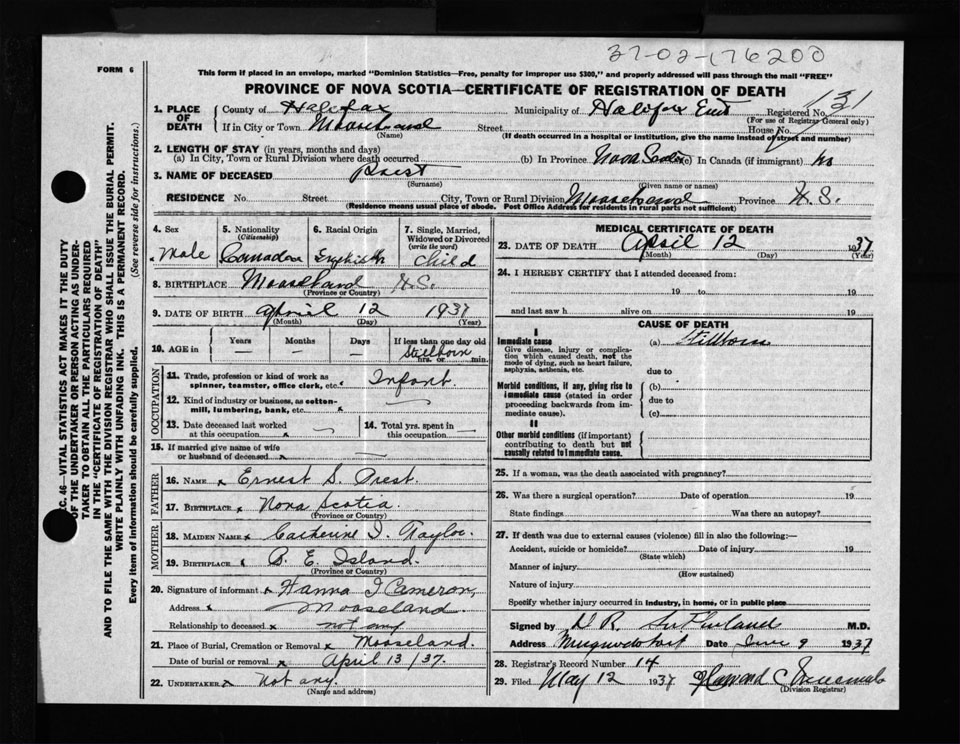 37-02-176200
FORM 6
This form if placed in an envelope, marked "Dominion Statistics—Free, penalty for improper use $300," and properly addressed will pass through the mail "FREE"
PROVINCE OF NOVA SCOTIA—CERTIFICATE OF REGISTRATION OF DEATH
1. PLACE OF DEATH County of Halifax Municipality of Halifax East Registered No. 131
(For use of Registrar General only)
If in City or Town Mooseland Street House No.
(Name) (If death occurred in a hospital or institution, give the name instead of street and number)
2. LENGTH OF STAY (in years, months and days)
(a) In City, Town or Rural Division where death occurred (b) In Province Nova Scotia (c) In Canada (if immigrant) no
3. NAME OF DECEASED Prest
(Surname) (Given name or names)
RESIDENCE No. Street City, Town or Rural Division Mooseland Province N.S.
(Residence means usual place of abode. Post Office Address for residents in rural parts not sufficient)
4. Sex 5. Nationality (Citizenship) 6. Racial Origin 7. Single, Married, Widowed or Divorced (write the word)
Male Canadian English Child
8. BIRTHPLACE Mooseland N.S.
(Province or Country)
9. DATE OF BIRTH April 12 1937
(Month) (Day) (Year)
10. AGE in Years Months Days If less than one day old
— — — Stillborn hrs. or min.
OCCUPATION
11. Trade, profession or kind of work as spinner, teamster, office clerk, etc. Infant
12. Kind of industry or business, as cotton-mill, lumbering, bank, etc. —
13. Date deceased last worked at this occupation — 14. Total yrs. spent in this occupation —
15. If married give name of wife or husband of deceased —
FATHER
16. NAME Ernest S. Prest.
17. BIRTHPLACE Nova Scotia
(Province or Country)
MOTHER
18. MAIDEN NAME Catherine I. Taylor
19. BIRTHPLACE P. E. Island.
(Province or Country)
20. Signature of informant Hanna I Cameron,
Address Mooseland.
Relationship to deceased not any
21. Place of Burial, Cremation or Removal Mooseland.
Date of burial or removal April 13/37.
22. UNDERTAKER Not any.
(Name and address)
MEDICAL CERTIFICATE OF DEATH
23. DATE OF DEATH April 12 1937
(Month) (Day) (Year)
24. I HEREBY CERTIFY that I attended deceased from:
19 to 19
and last saw h alive on 19
CAUSE OF DEATH
I
Immediate cause (a) Stillborn
Give disease, injury or complication which caused death, not the mode of dying, such as heart failure, asphyxia, asthenia, etc.
due to
Morbid conditions, if any, giving rise to immediate cause (stated in order proceeding backwards from immediate cause).
(b)
due to
(c)
II
Other morbid conditions (if important) contributing to death but not causally related to immediate cause.
25. If a woman, was the death associated with pregnancy?
26. Was there a surgical operation? Date of operation 19
State findings Was there an autopsy?
27. If death was due to external causes (violence) fill in also the following:—
Accident, suicide or homicide? Date of injury 19
(State which)
Manner of injury
(How sustained)
Nature of injury
Specify whether injury occurred in industry, in home, or in public place
Signed by D R M.D.
Address Date June 9 1937
28. Registrar's Record Number 14
29. Filed May 12 1937 Howard C
(Division Registrar)
SEC. 46—VITAL STATISTICS ACT MAKES IT THE DUTY
OF THE UNDERTAKER OR PERSON ACTING AS UNDER-
TAKER TO OBTAIN ALL THE PARTICULARS REQUIRED
IN THE "CERTIFICATE OF REGISTRATION OF DEATH"
AND TO FILE THE SAME WITH THE DIVISION REGISTRAR WHO SHALL ISSUE THE BURIAL PERMIT.
WRITE PLAINLY WITH UNFADING INK. THIS IS A PERMANENT RECORD.
Every item of information should be carefully supplied. (See reverse side for instructions.)